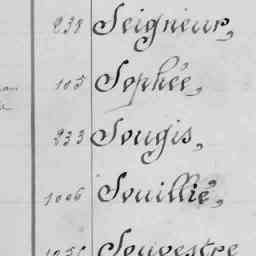 838 Seigneur,
105 Sophée,
833 Sougis,
1006 Souillié,
Souvestre